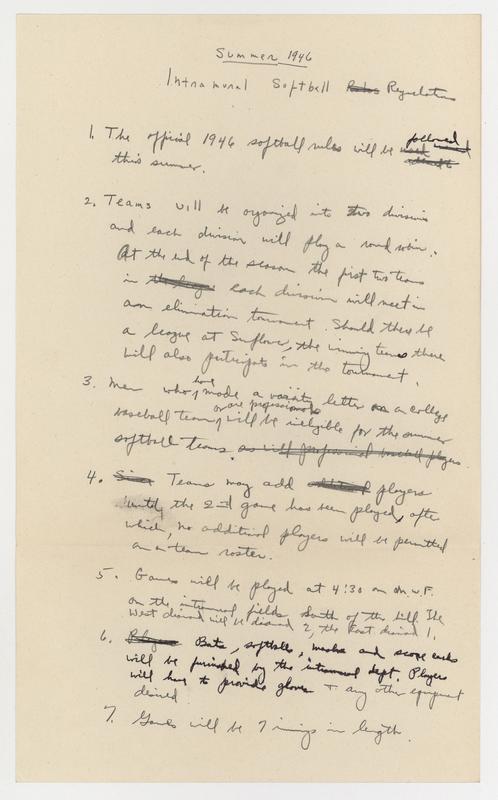 Summer 1946
Intramural Softball Rules Regulations
1. The official 1946 softball rules will be followed
this summer.
2. Teams will be organized into two divisions
and each division will play a round robin.
At the end of the season the first two teams
in the league each division will meet in
an elimination tournament. Should there be
a league at Sunflower, the winning teams there
will also participate in the tournament.
3. Men who have made a varsity letter on a college
or are professionals
baseball team, will be ineligible for the summer
softball teams. as will professional baseball players.
4. Since Teams may add additional players
until the 2nd game has been played, after
which, no additional players will be permitted
on a team roster.
5. Games will be played at 4:30 on M.W.F.
on the intramural fields south of the hill. The
West diamond will be diamond 2, the East diamond 1.
6. Players Bats, softballs, masks and score cards
will be furnished by the intramural dept. Players
will have to provide gloves + any other equipment
desired.
7. Games will be 7 innings in length.